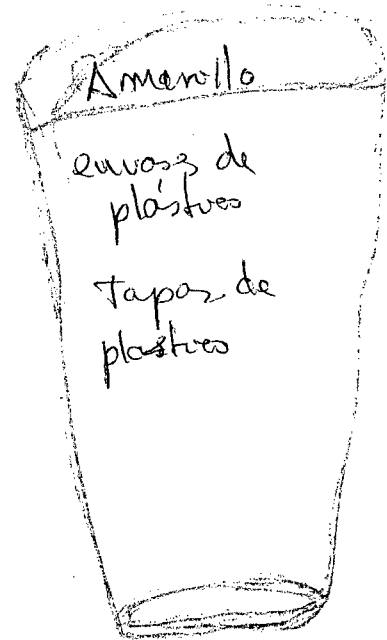 Amarillo
envases de
plástico
tapas de
plastico